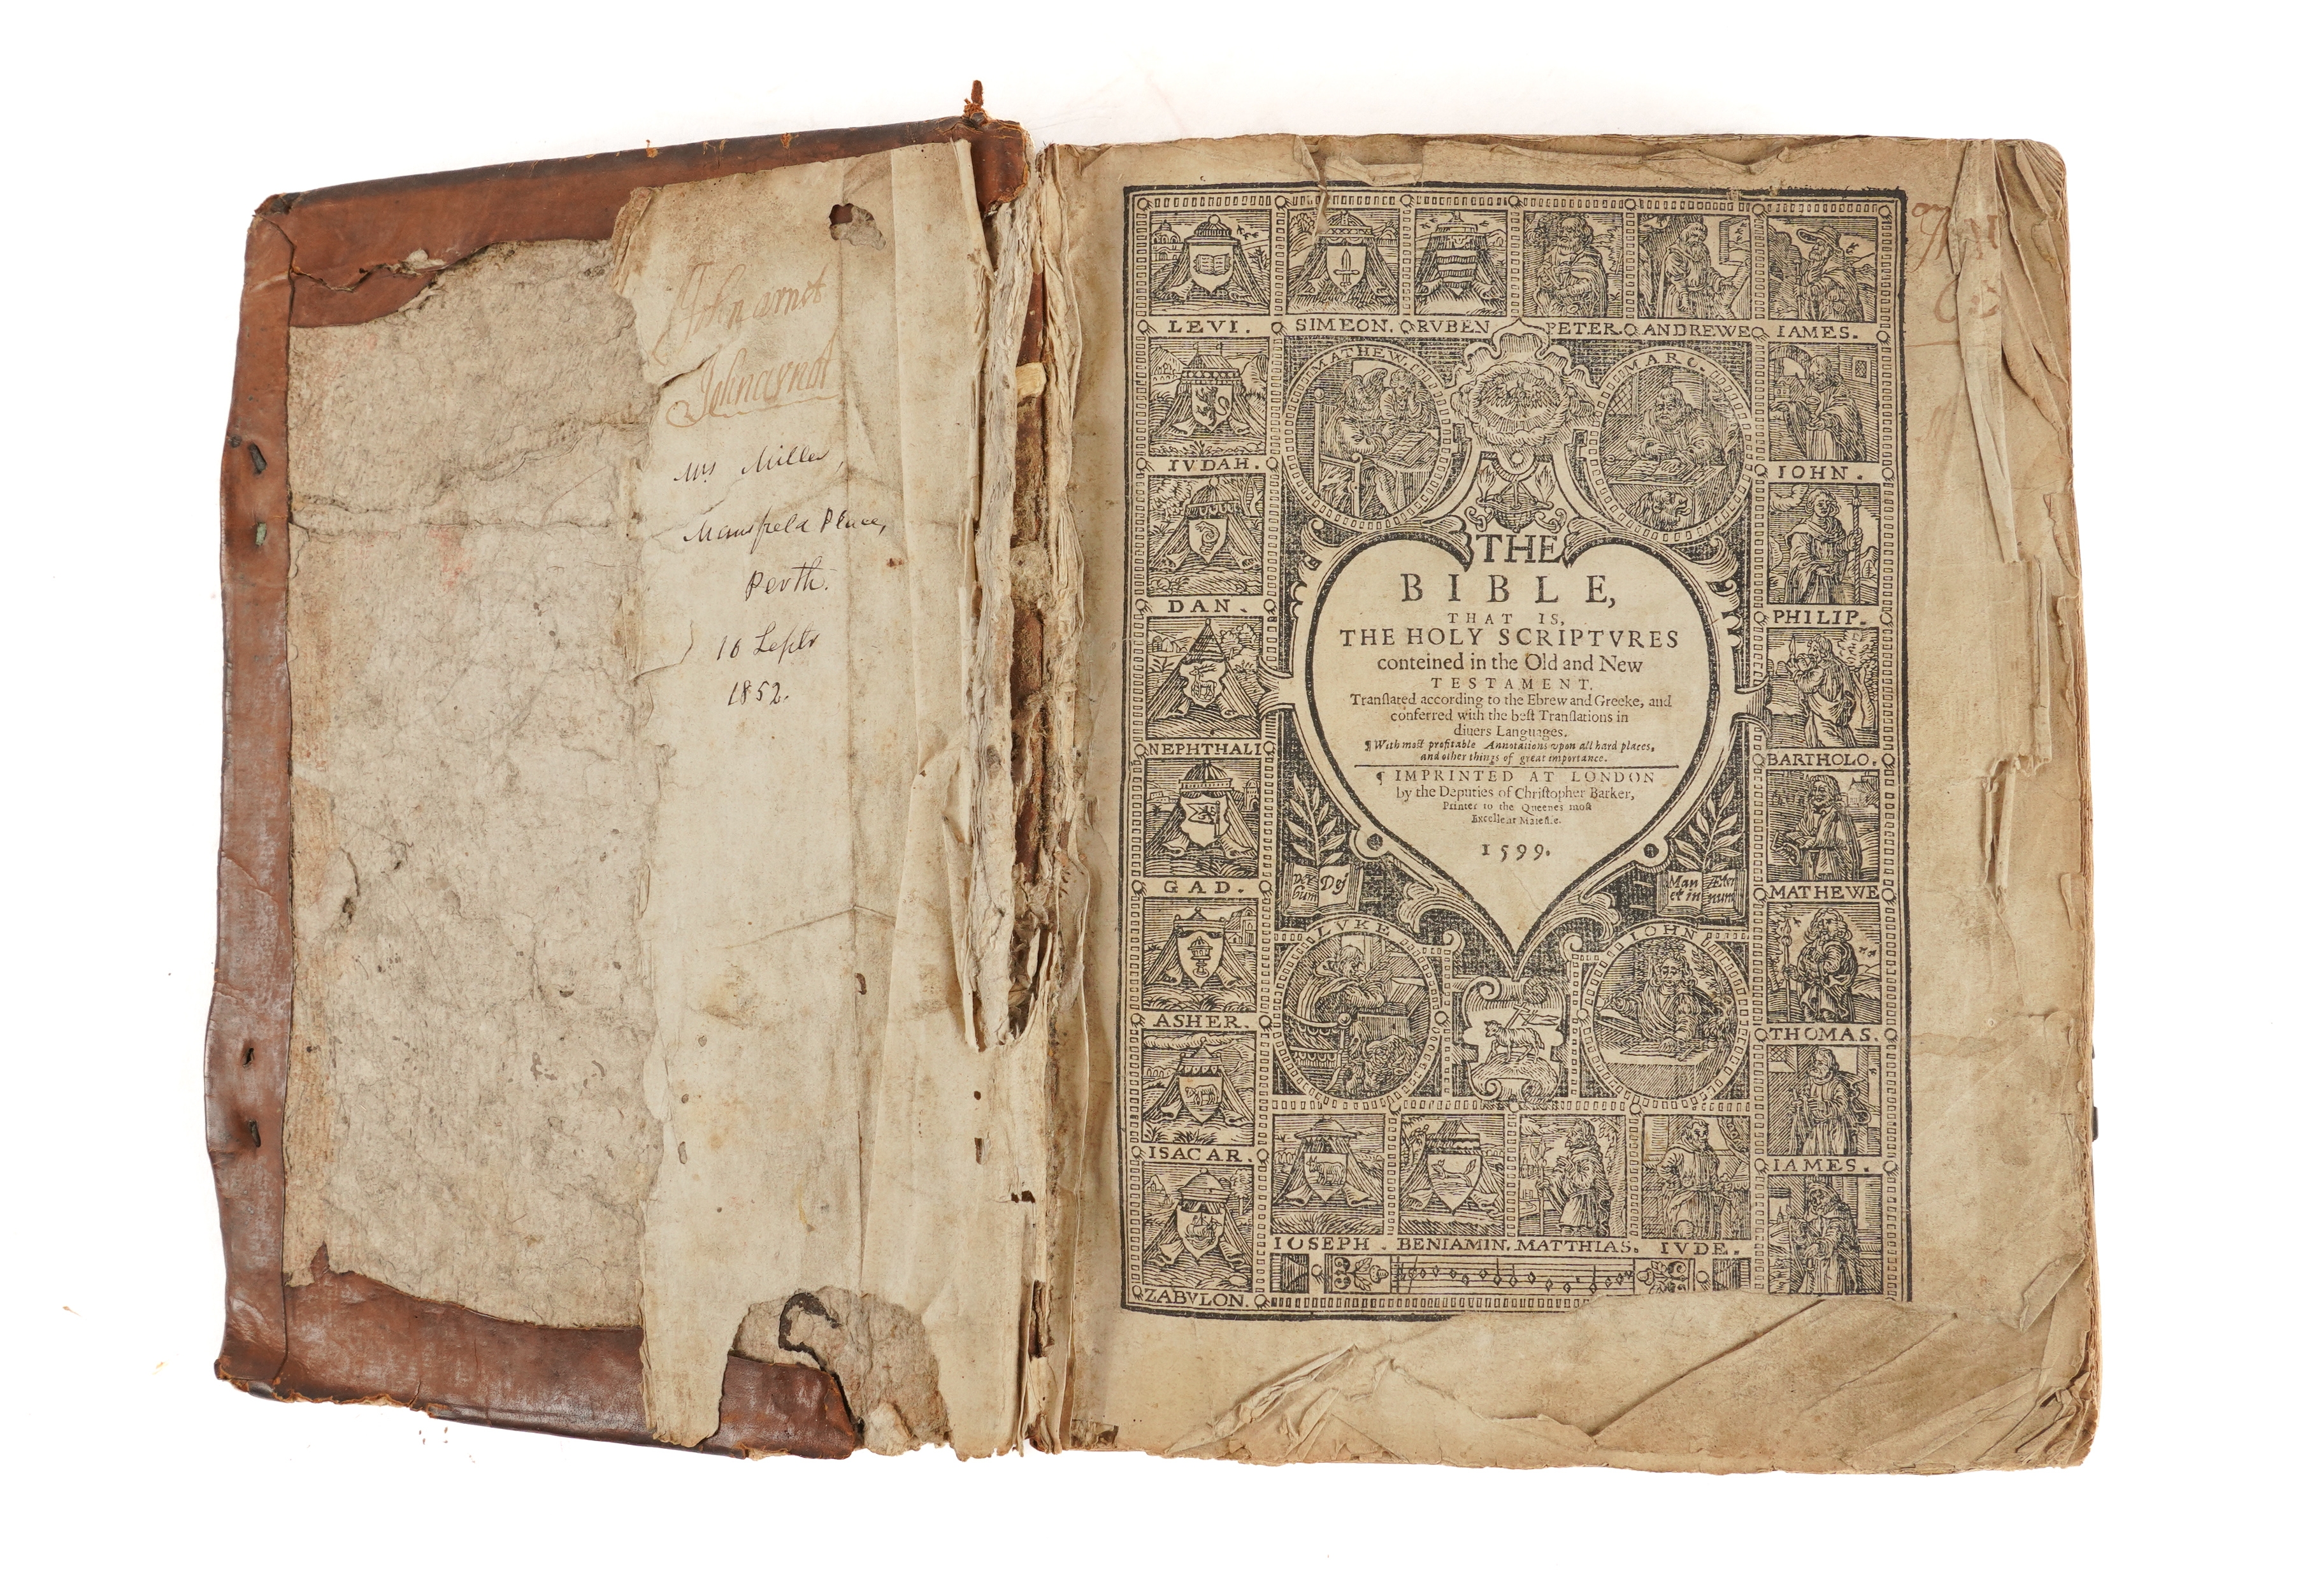 John arnot
John arnot
Mrs Miller,
Mansfield Place,
Perth.
10 Septr
1852.
LEVI. SIMEON. RVBEN PETER. ANDREWE IAMES.
MATHEW. MARC.
IVDAH. IOHN.
DAN. PHILIP.
NEPHTHALI BARTHOLO.
GAD. MATHEWE
ASHER. THOMAS.
ISACAR. IAMES.
ZABVLON.
THE
BIBLE,
THAT IS,
THE HOLY SCRIPTVRES
conteined in the Old and New
TESTAMENT.
Tranſlated according to the Ebrew and Greeke, and
conferred with the beſt Tranſlations in
diuers Languages.
¶ With moſt profitable Annotations vpon all hard places,
and other things of great importance.
¶ IMPRINTED AT LONDON
by the Deputies of Chriſtopher Barker,
Printer to the Queenes moſt
Excellent Maieſtie.
1599.
Ver Dei
bum
Man Æter
et in num
LVKE IOHN
IOSEPH. BENIAMIN. MATTHIAS. IVDE.